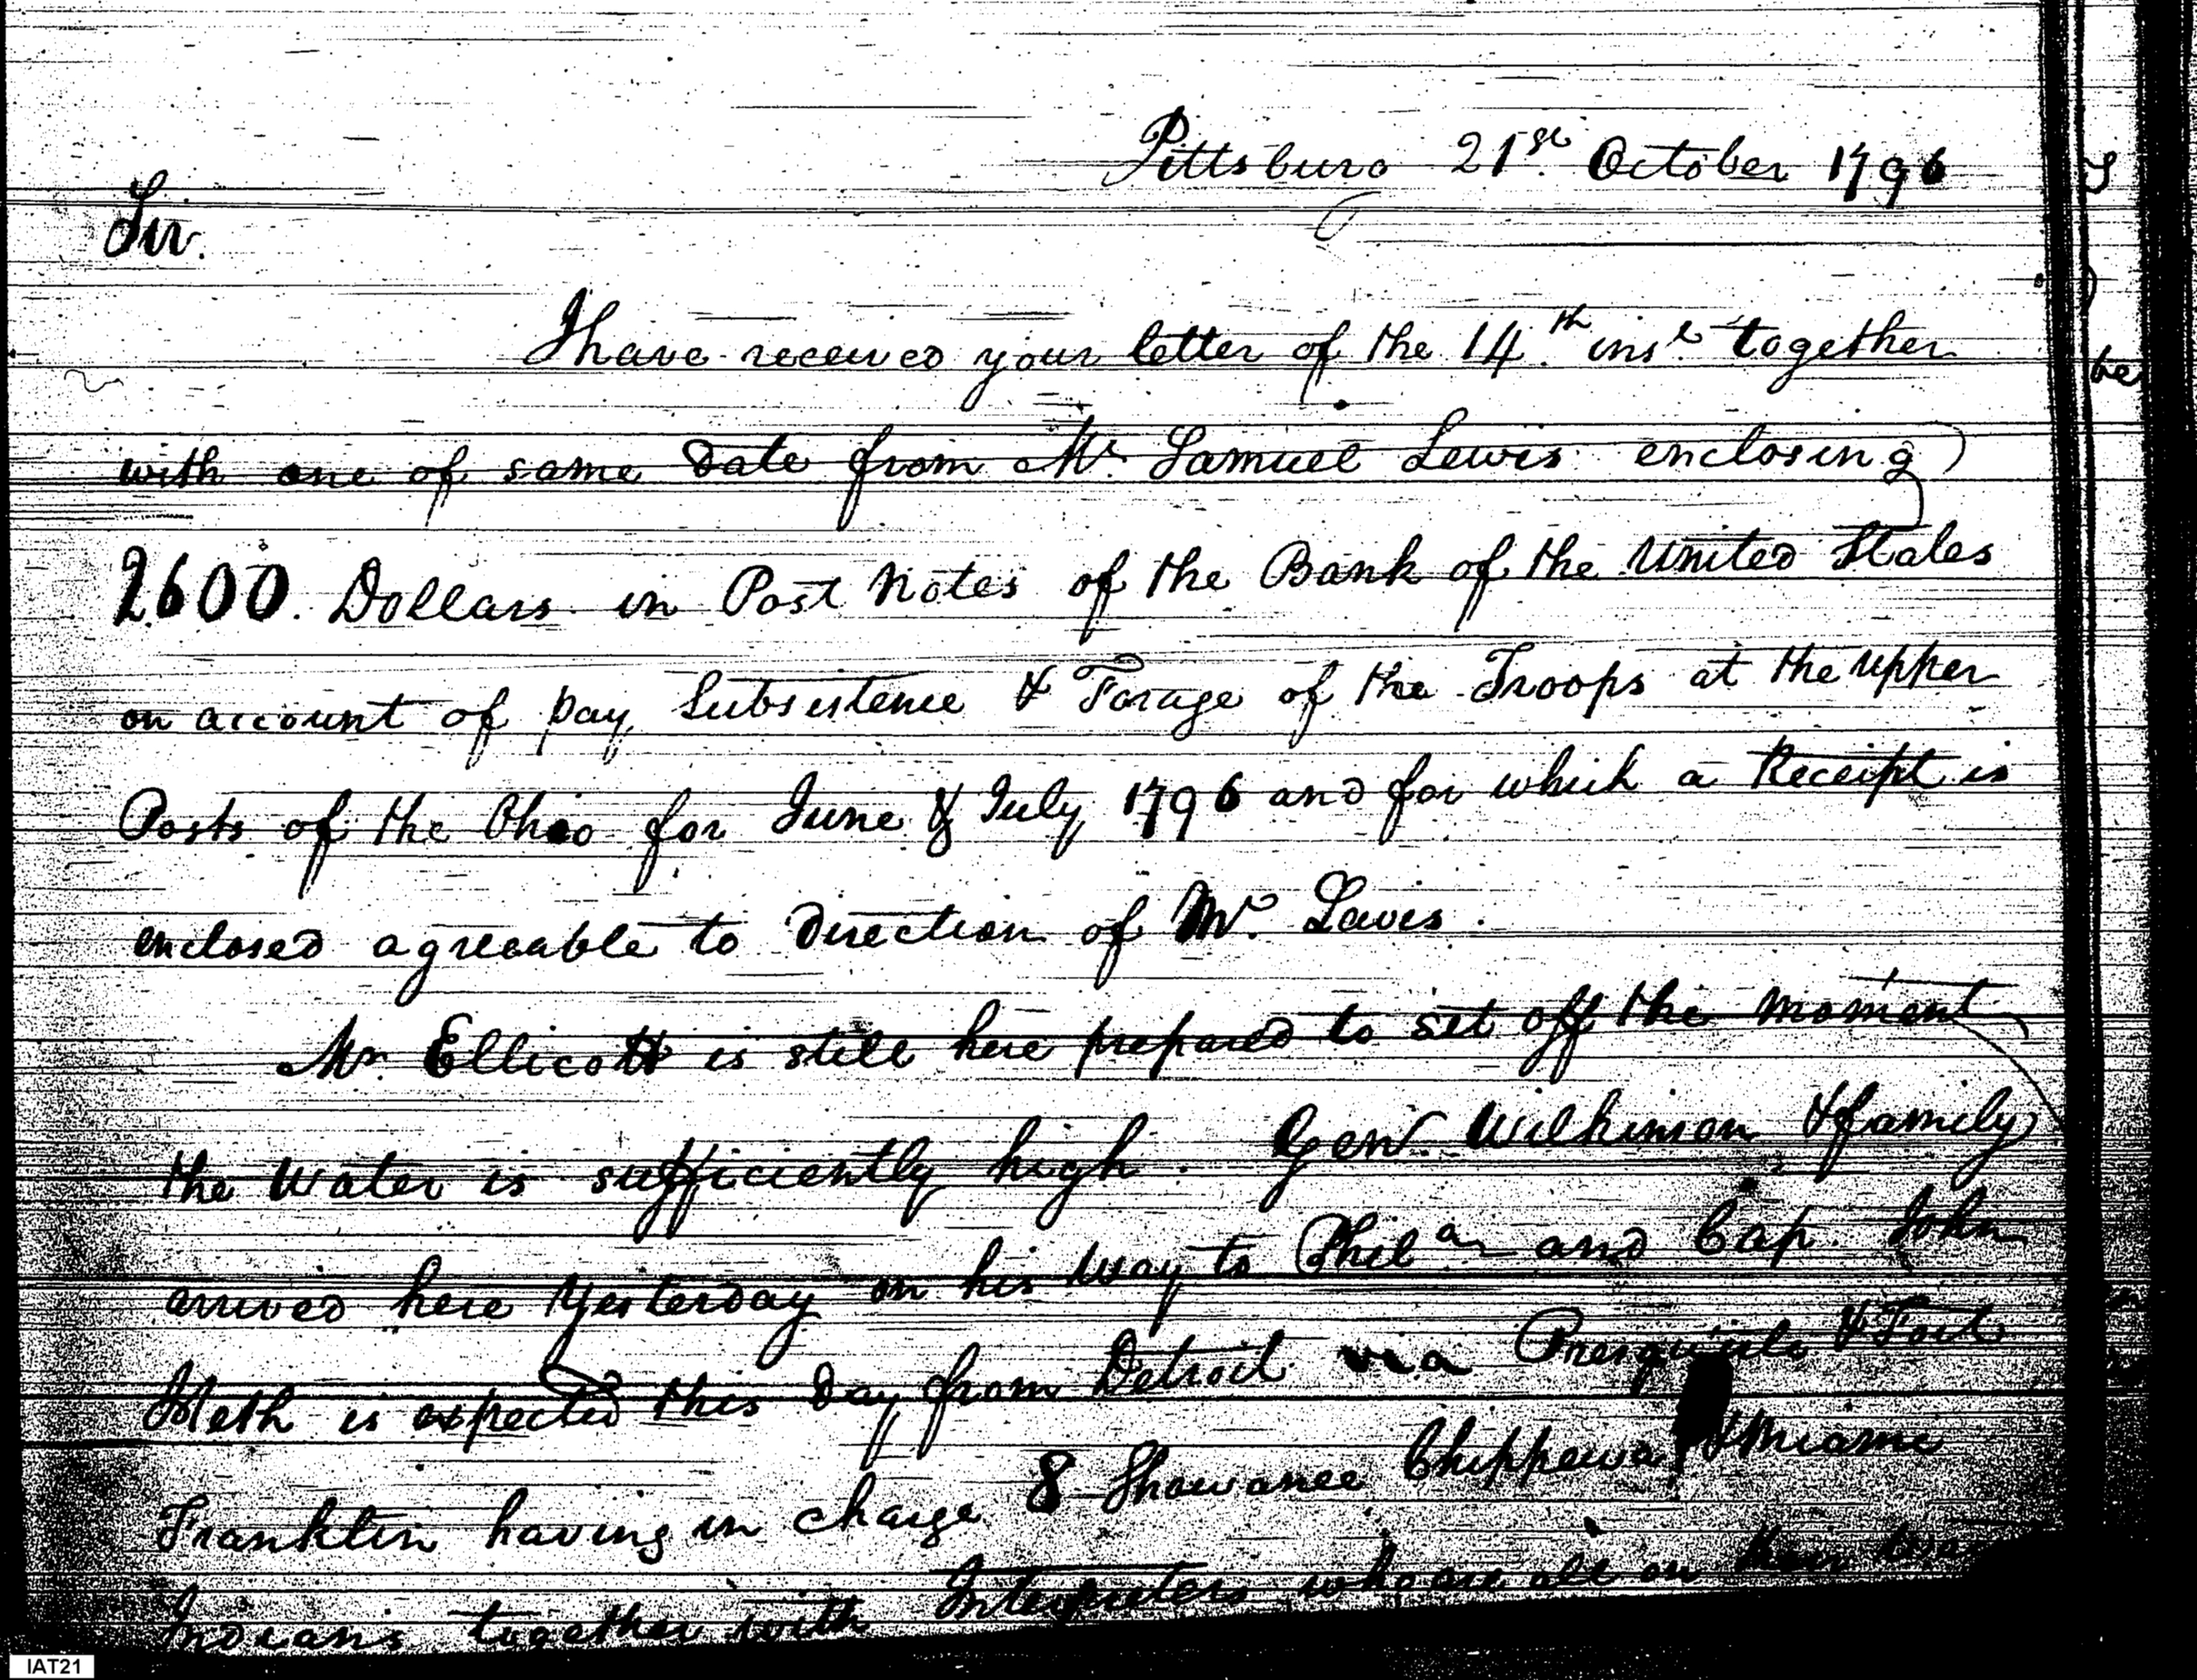 Pittsburg 21st. October 1796
Sir.
I have received your letter of the 14.th inst. together
with one of same Date from Mr. Samuel Lewis enclosing
2600. Dollars in Post Notes of the Bank of the United States
on account of pay, Subsistence & Forage of the Troops at the upper
Posts of the Ohio for June & July 1796 and for which a Receipt is
enclosed agreeable to Direction of Mr. Lewis.
Mr. Ellicott is still here prepared to set off the moment
the Water is sufficiently high. Genl. Wilkinson & family
arrived here Yesterday on his way to Phila. and Cap. John
Heth is expected this Day from Detroit via Presquisle & Fort
Franklin having in charge 8 Shawanee Chippewa & Miami
Indians together with Interpreters who are all on their way
be
IAT21